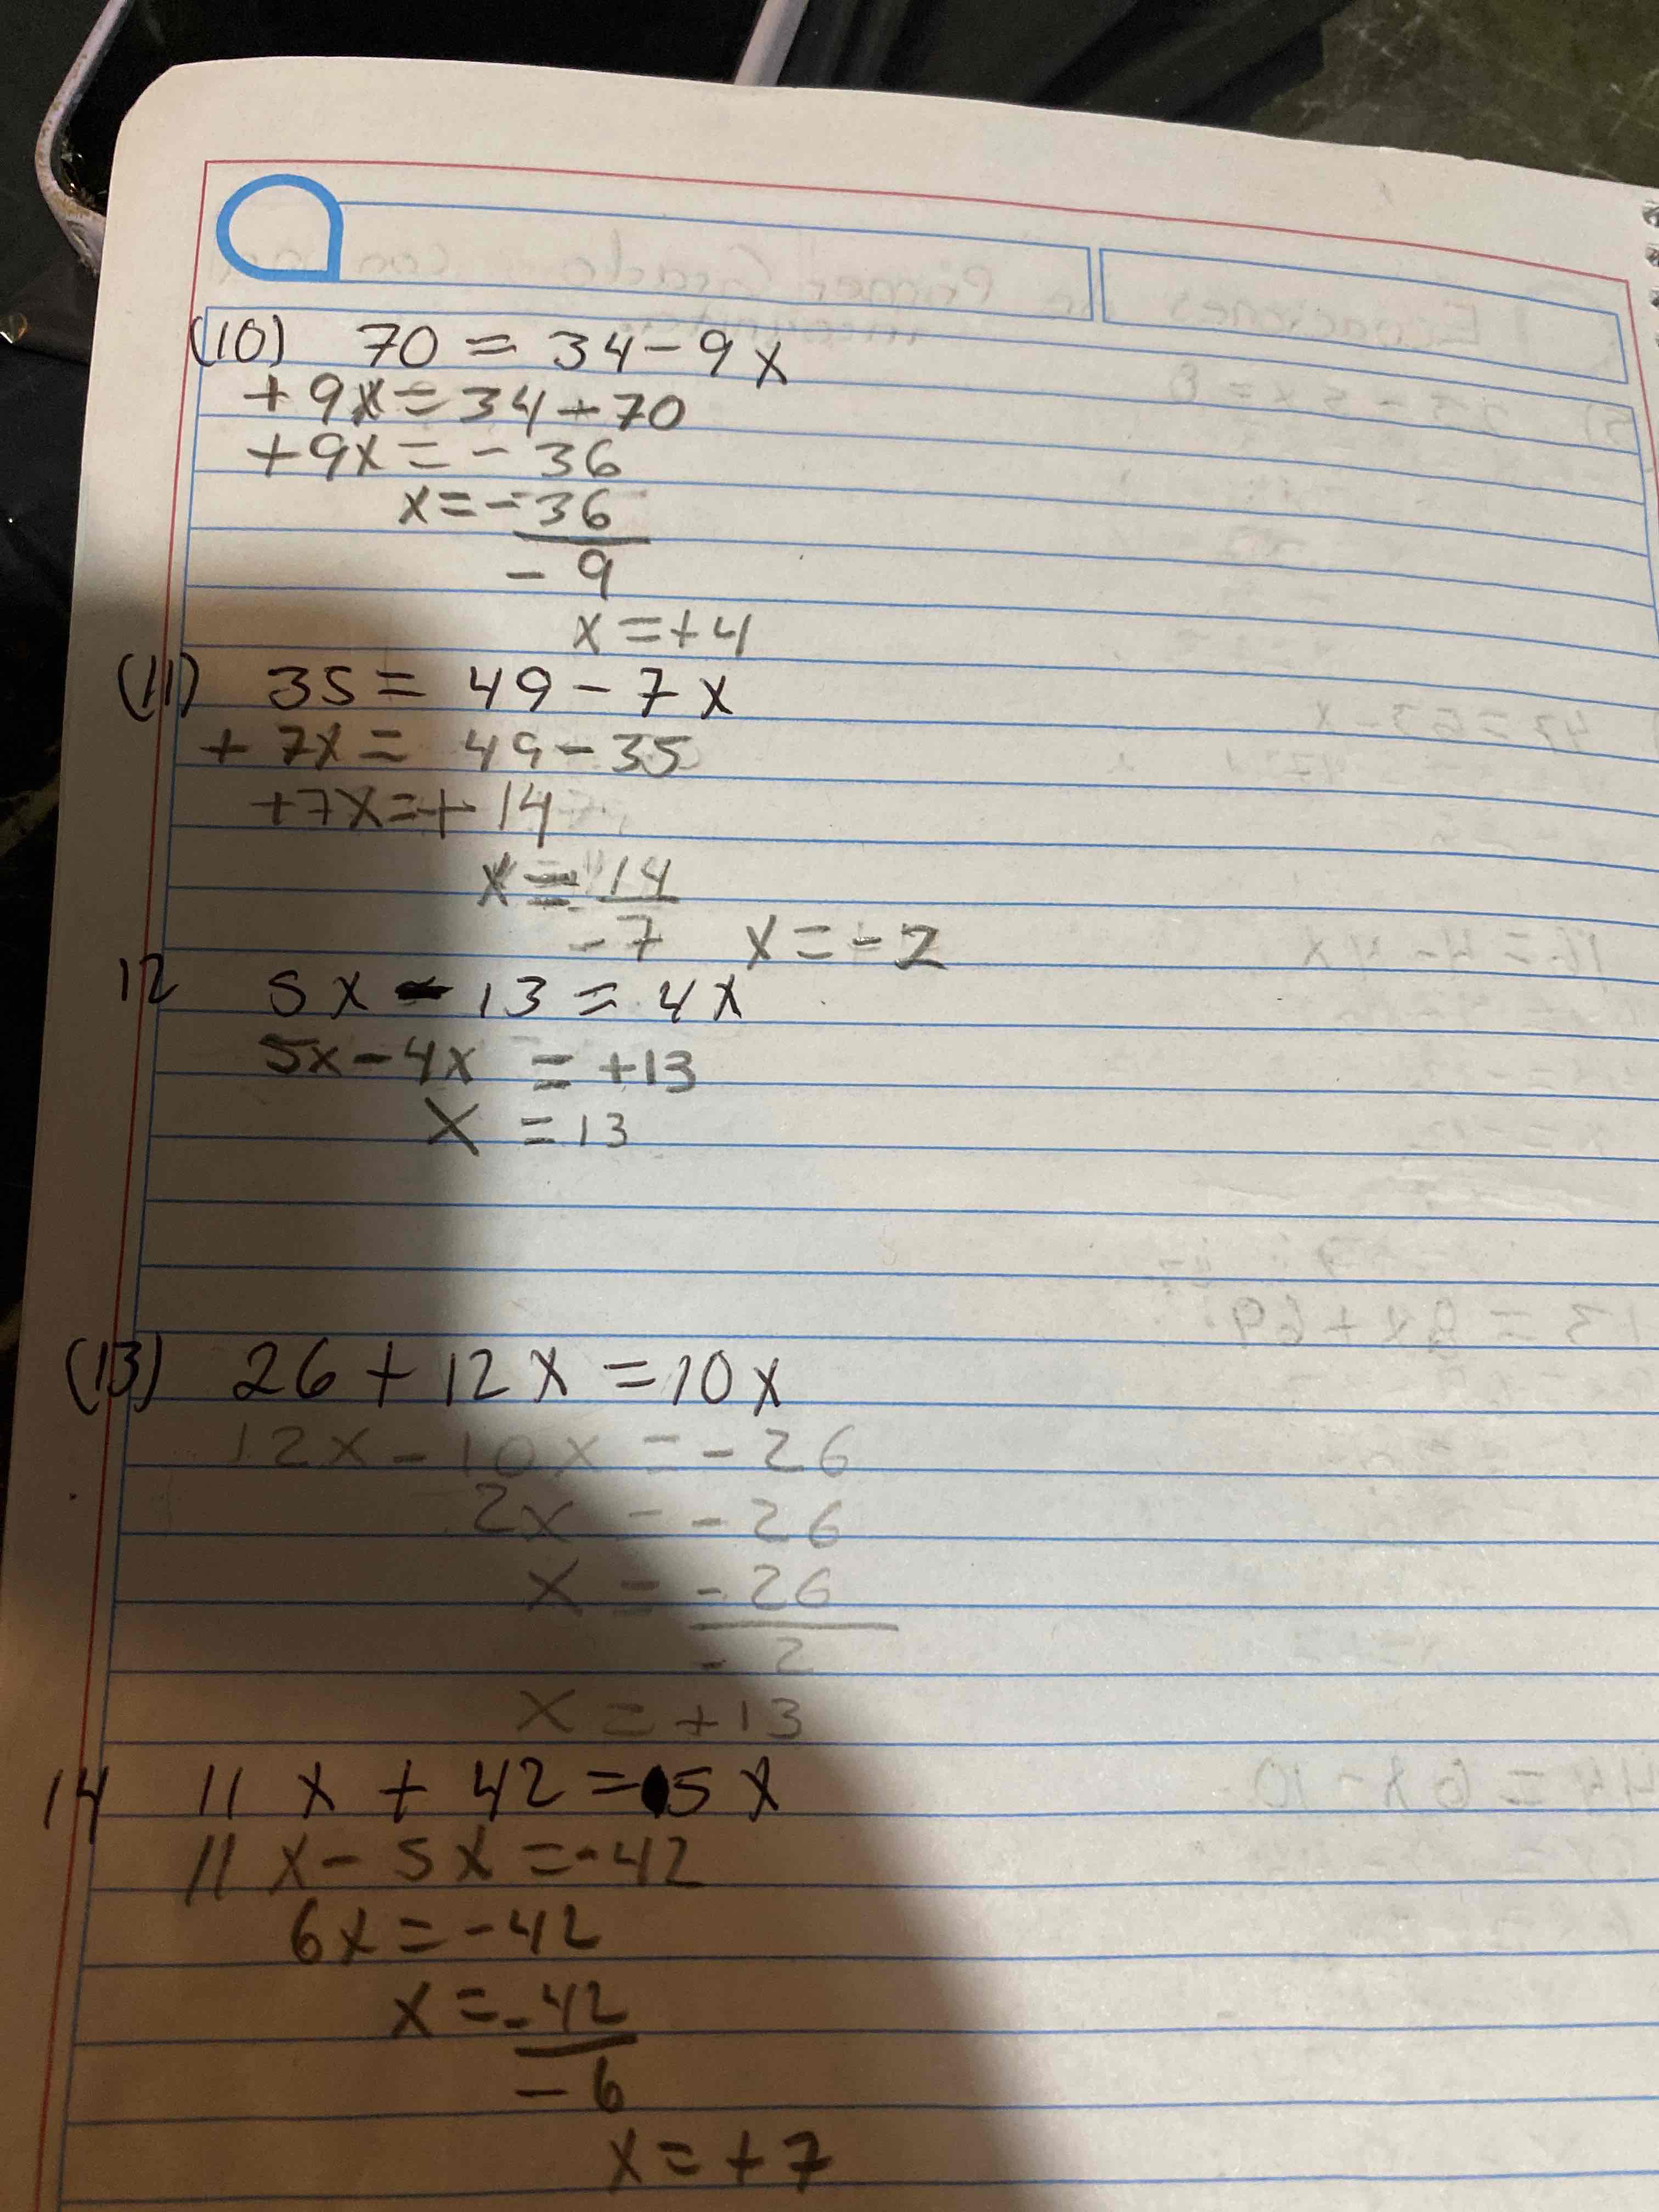 (10) 70 = 34 - 9x
+ 9x = 34 + 70
+ 9x = - 36
x = - 36
- 9
x = + 4
(11) 35 = 49 - 7x
+ 7x = 49 - 35
+ 7x = + 14
x = 14
- 7 x = - 2
12 5x - 13 = 4x
5x - 4x = + 13
x = 13
(13) 26 + 12x = 10x
12x - 10x = - 26
2x = - 26
x = - 26
- 2
x = + 13
14 11x + 42 = 5x
11x - 5x = - 42
6x = - 42
x = - 42
- 6
x = + 7